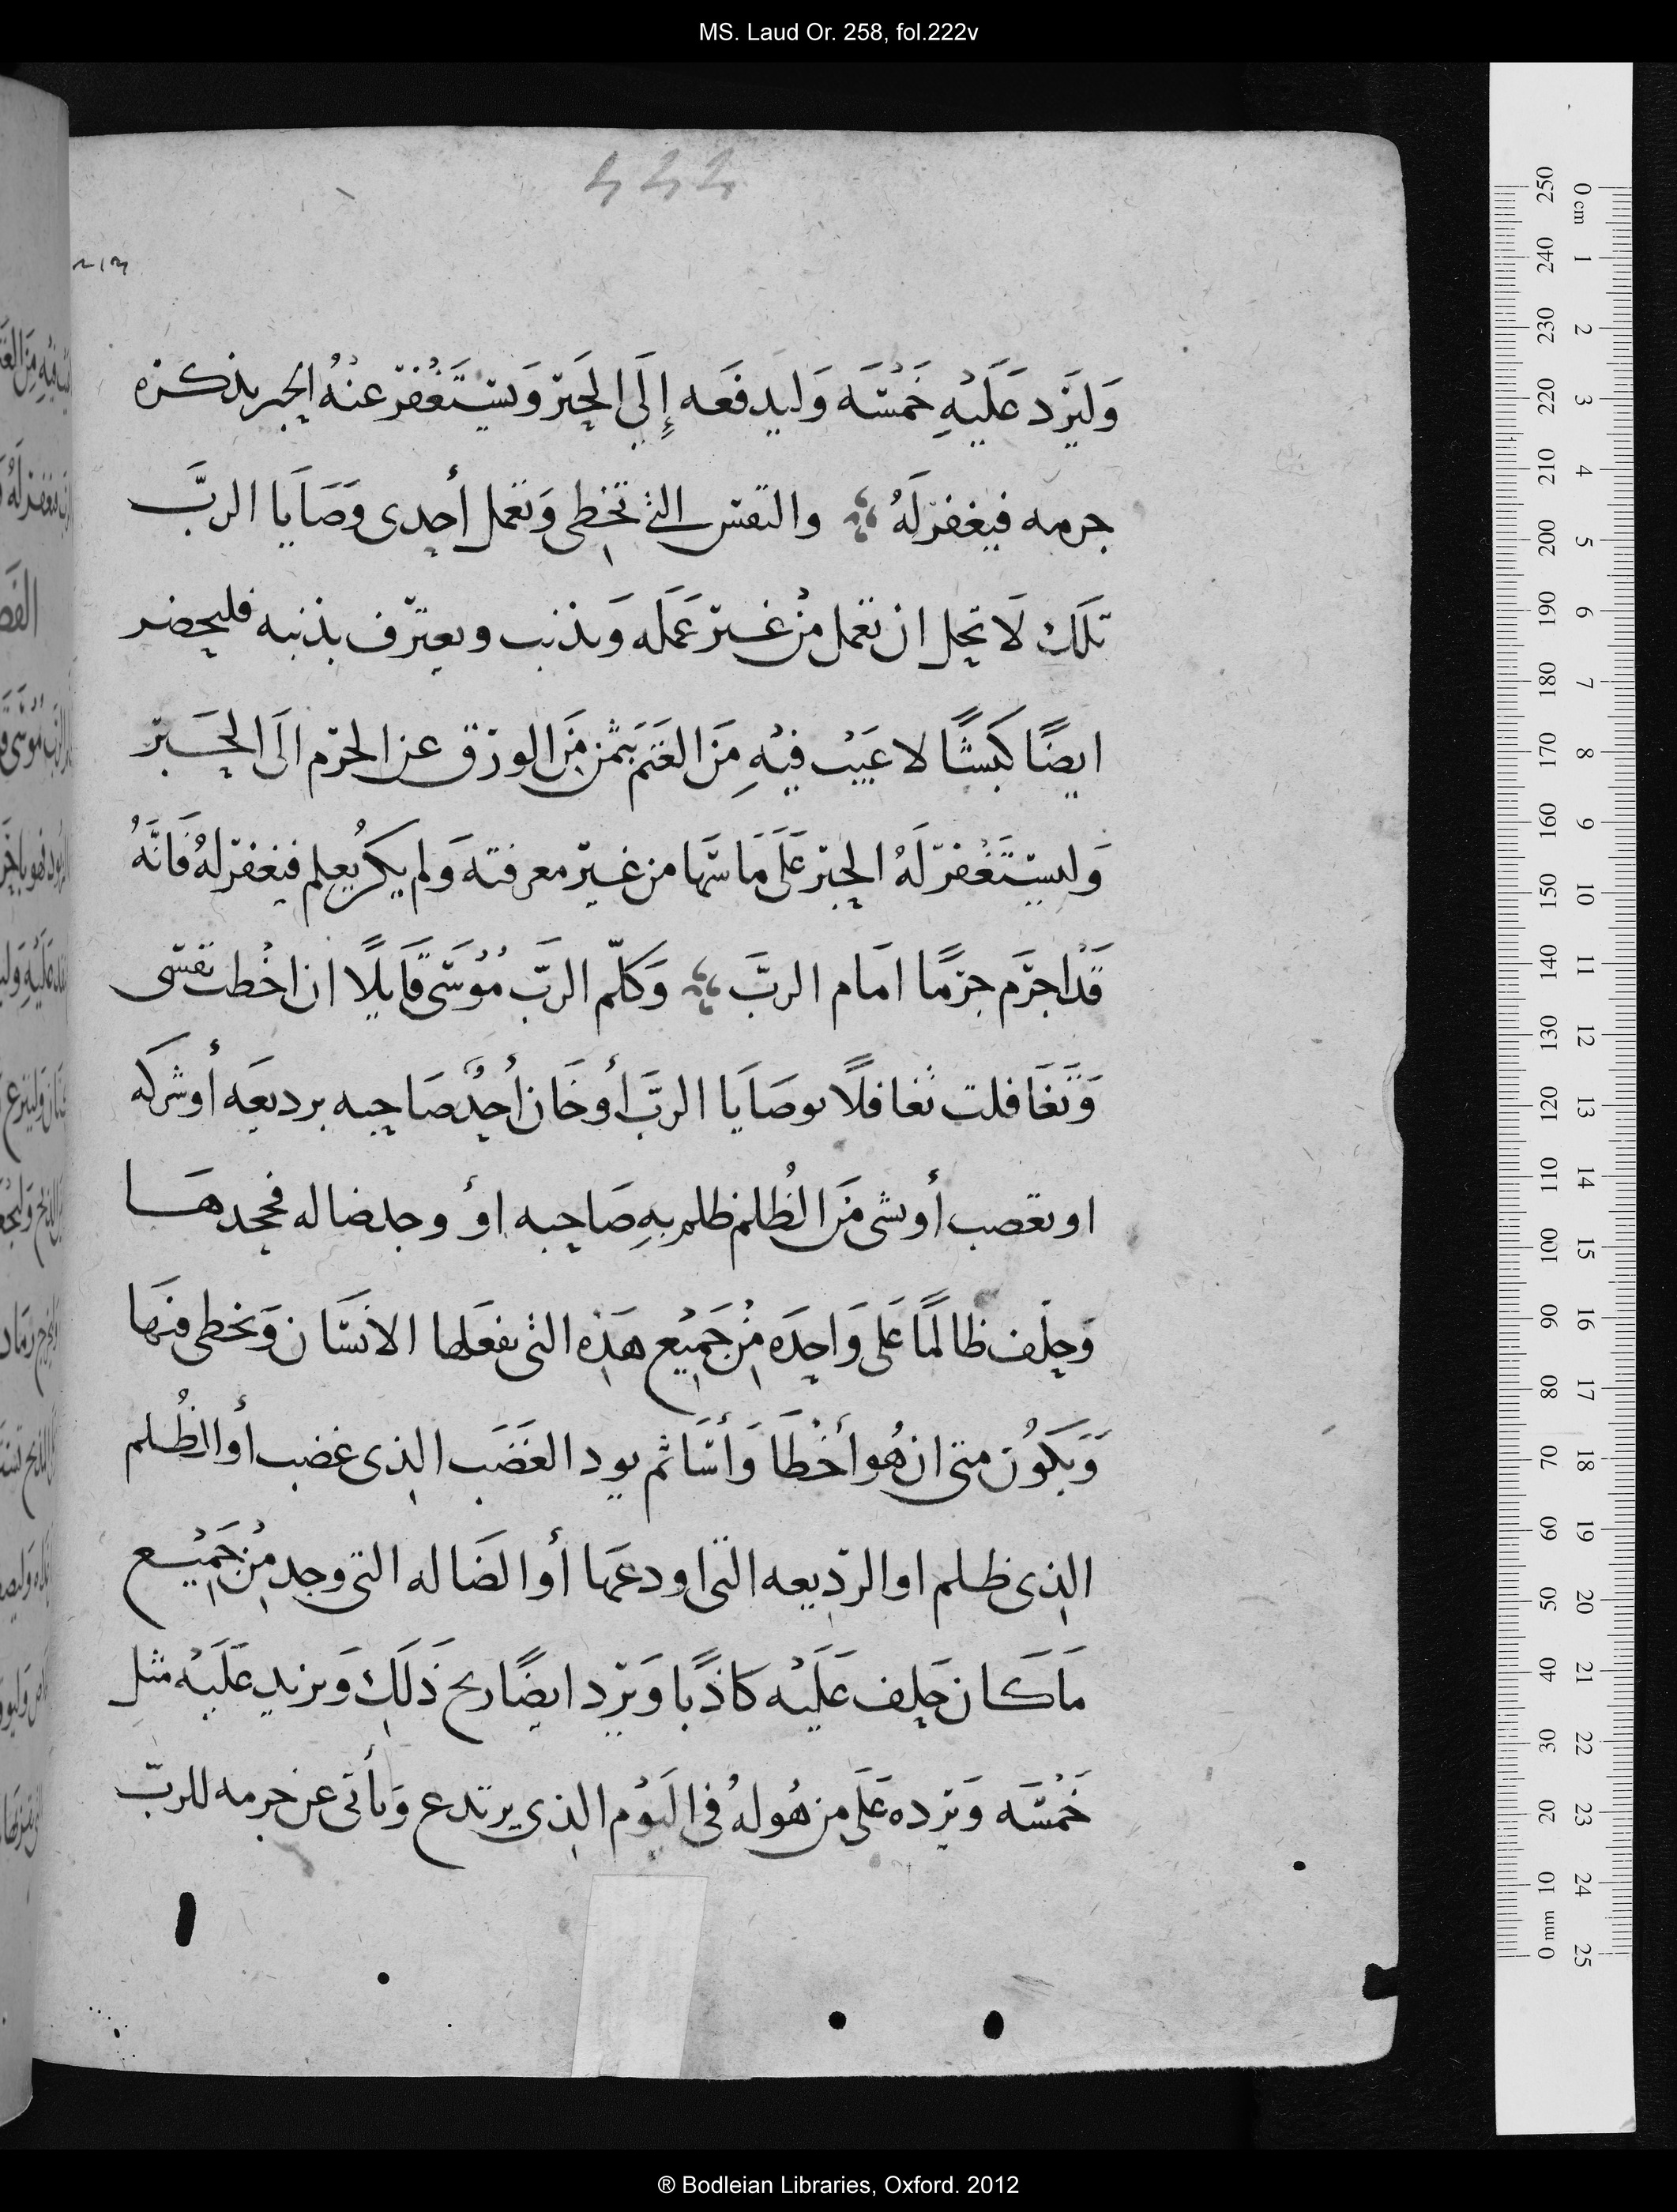 MS. Laud Or. 258, fol.222v
وَليَزد عَلَيْهِ خَمْسَه وَليدفَعه إِلَى الحَبر وَيسْتَغْفر عنْهُ الحبر بذكره
جرمه فيغفر لَهُ ؞ والنفس التى تخطى وَتعمل أحدى وَصَايَا الربَّ
تلك لَا تحل ان تعمل منْ غير عَمَله وَتذنب ويعترف بذنبه فليحضر
ايضًا كَبشًا لا عَيْب فيْهِ مَن الغَنَم بَثمن مَن الورق عن الجرم الَى الحَبر
وَليسْتَغْفر لَهُ الحبر عَلَى مَا سَها من غير معرفته وَلم يكن يُعلم فيغفر لهُ فَانَّهُ
قَدْ اجرَم جرمًا امَام الربَّ ؞ وَكلّم الربَّ مُوْسَى قَايلًا ان اخْطت نفسى
وَتَغَافلت تغَافلًا بوصَايَا الربَّ أو خَان أحدٌ صَاحبه برديعَه أو شركه
او تغصب أو شى مَن الظُلم ظلم بهِ صَاحبه أو وجد ضاله فجحدهَا
وَحلف ظالمًا على وَاحدَه منْ جَميْع هَذِه التى يفعَلها الانسَان وَتخطى فيهَا
وَيَكُوْن متى ان هُو أخْطَا وَأسَا ثم يود الغَضَب الذى غضب أو الظُلم
الذى ظلم او الرديعه التى اودعَها أو الضَاله التى وجد منْ جَميْع
مَا كَان حَلف عَلَيْه كاذبًا وَيَرد ايضًا ربح ذَلَك وَيزيد عَلَيْه مثل
خَمْسَه وَيرده عَلَى من هُو لهُ فى اليَوْم الذى يرتدع وَيأتى عن جرمه للربّ
® Bodleian Libraries, Oxford. 2012